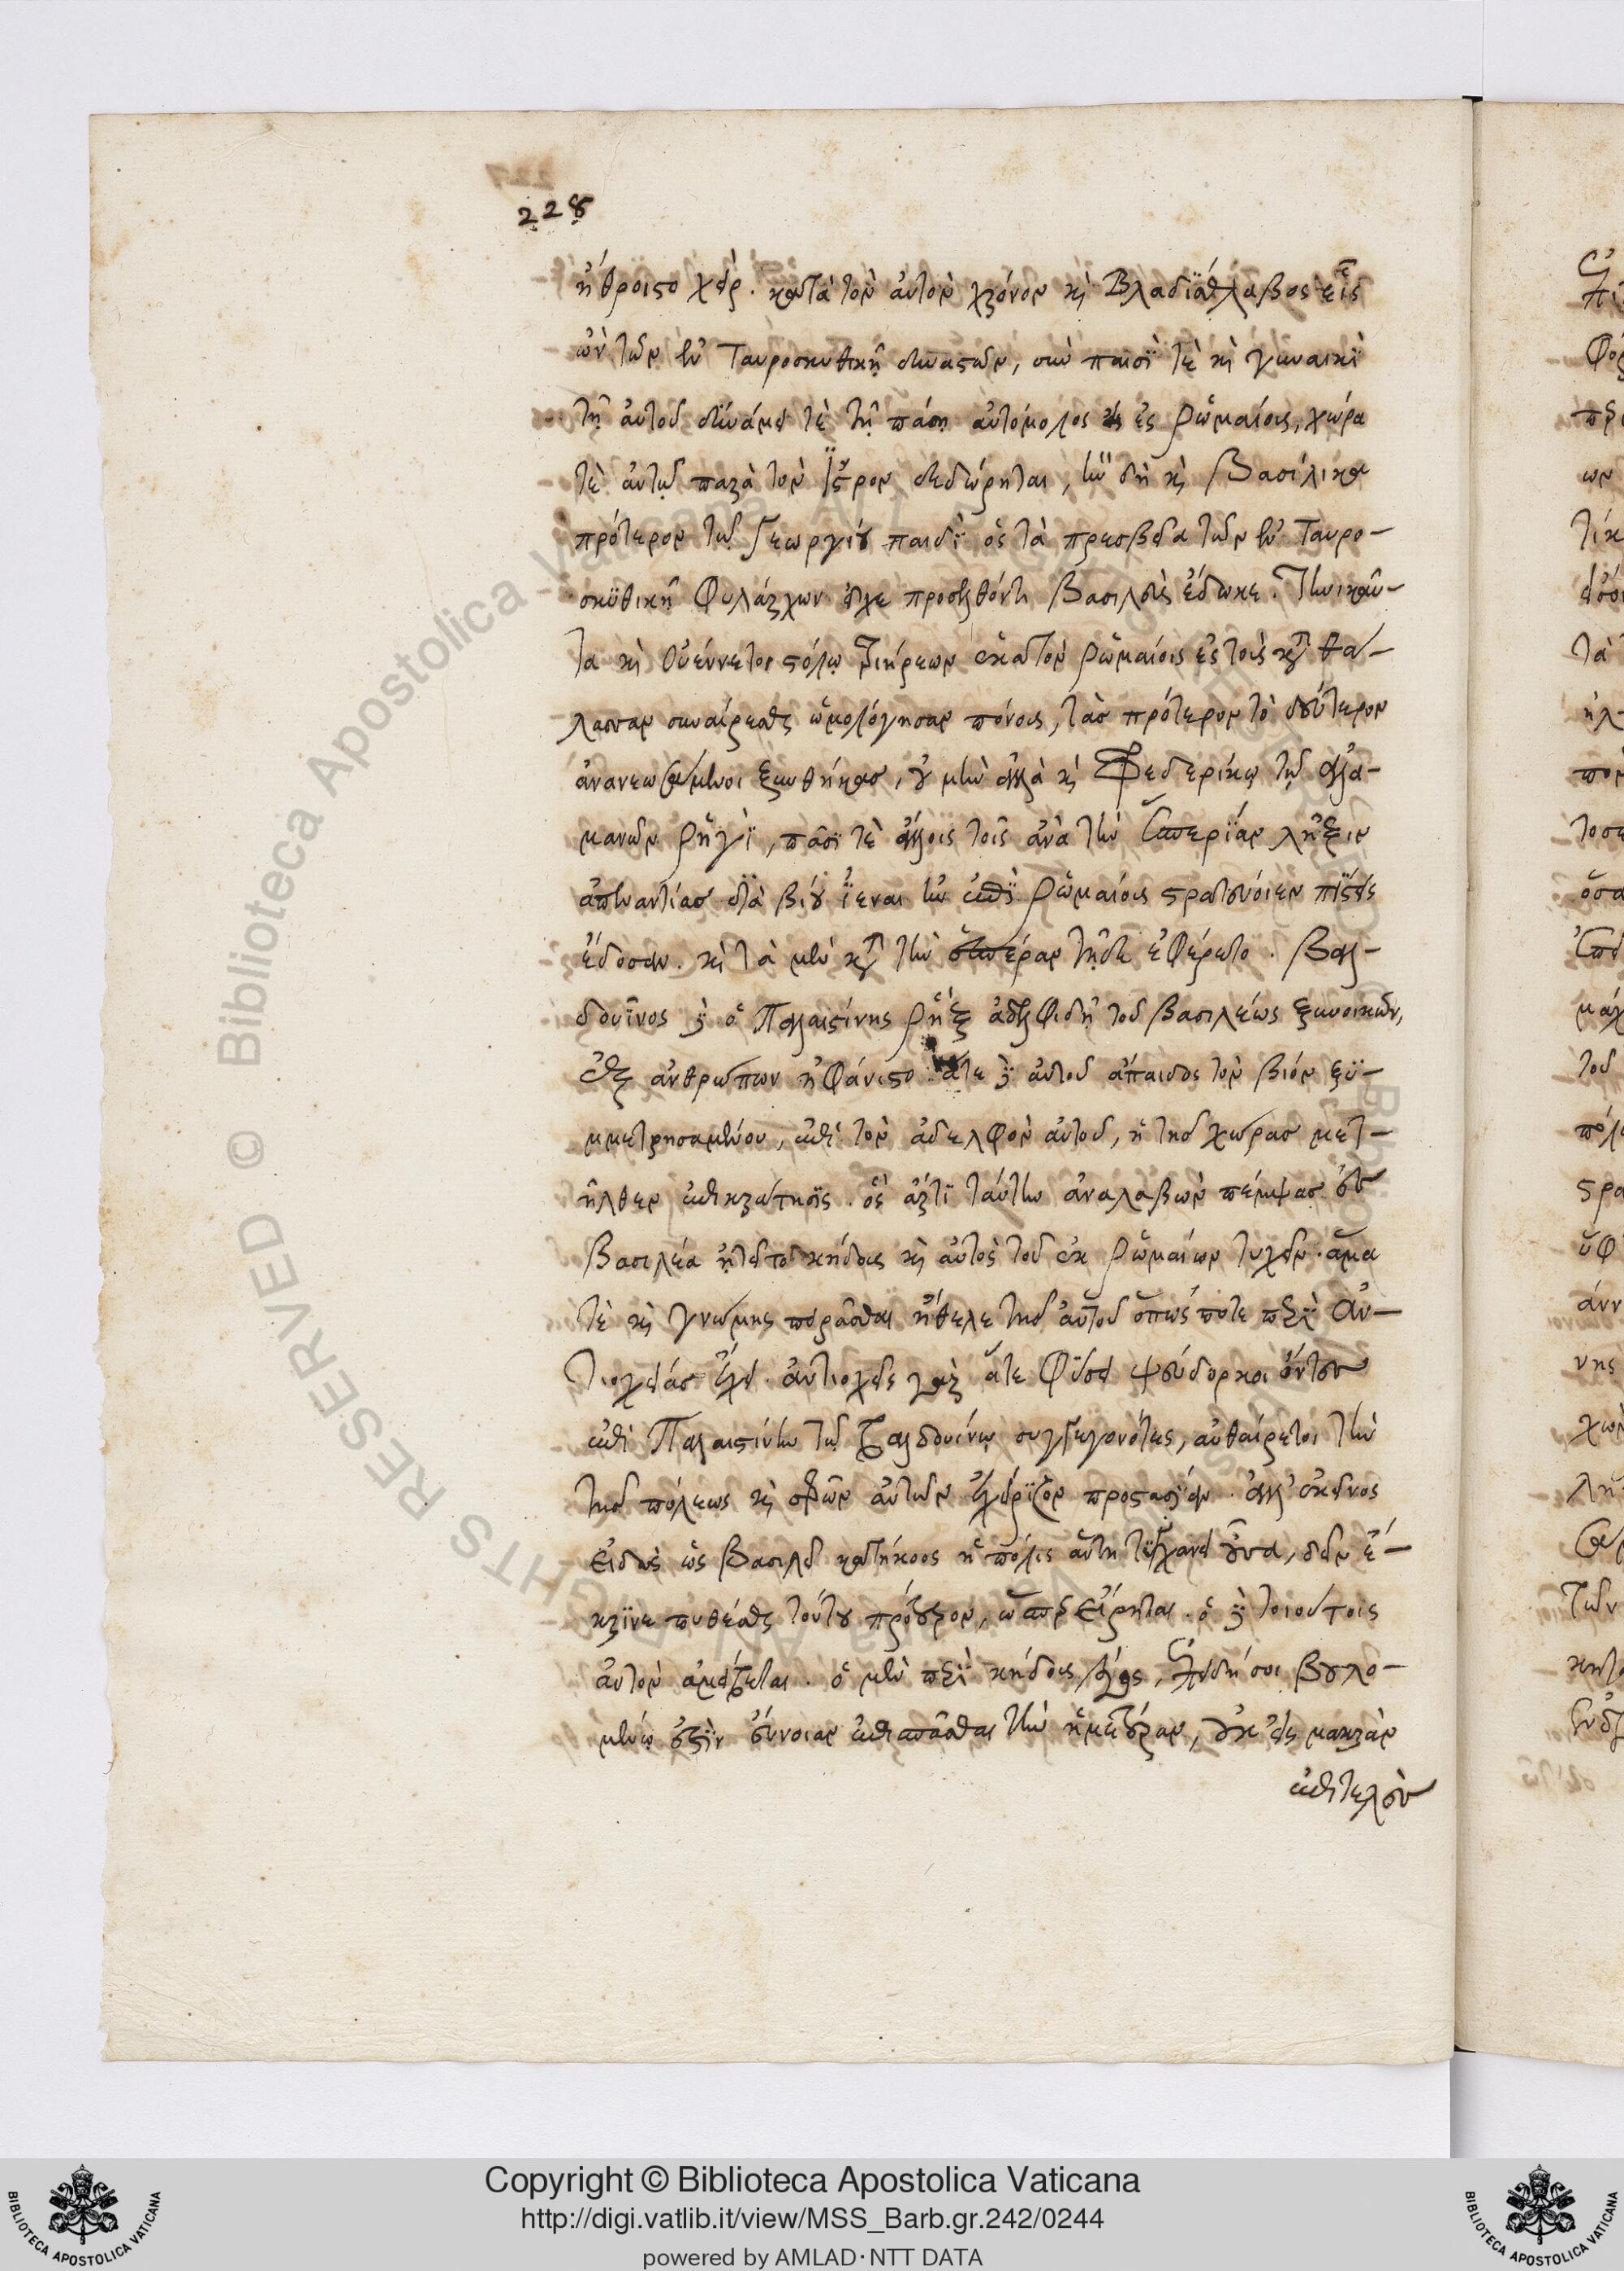 228
ἤθροιστο χείρ. κατὰ τὸν αὐτὸν χρόνον καὶ Βλαδισθλάβος εἷς
ὢν τῶν ἐν Ταυροσκυθικῇ δυναστῶν, σὺν παισί τὲ καὶ γυναικὶ
τῇ αὐτοῦ δυνάμει τὲ τῇ πάσῃ αὐτόμολος ἐς Ῥωμαίοις, χώρα
τὲ αὐτῷ παρὰ τὸν Ἴστρον δεδώρηται, ἣν δὴ καὶ Βασιλίκᾳ
πρότερον τῷ Γεωργίου παιδὶ ὃς τὰ πρεσβεῖα τῶν ἐν Ταυρο-
σκυθικῇ φυλάρχων εἶχε προσελθόντι βασιλεὺς ἔδωκε. τηνικαῦ-
τα καὶ Οὐέννετοι στόλῳ τριήρεων ἑκατὸν Ῥωμαίοις ἐς τοὺς κατὰ θά-
λασσαν συναίρεσθαι ὡμολόγησαν πόνους, τὰς πρότερον τὸ δεύτερον
ἀνανεωσάμενοι ξυνθήκας, οὐ μὴν ἀλλὰ καὶ Φεδερίκῳ τῷ Ἀλα-
μανῶν ῥηγὶ, πᾶσί τὲ ἄλλοις τοῖς ἀνὰ τὴν ἑσπερίαν λῆξιν
ἀπεναντίας διὰ βίου ἰέναι ἢν ἐπὶ Ῥωμαίοις στρατεύοιεν πίστεις
ἔδοσαν. καὶ τὰ μὲν κατὰ τὴν ἑσπέραν τῇδε ἐφέρετο. Βαλ-
δουῖνος δὲ ὁ Παλαιστίνης ῥὴξ ἀδελφιδῇ τοῦ βασιλέως ξυνοικῶν,
ἐξ ἀνθρώπων ἠφάνιστο. ἅτε δὲ αὐτοῦ ἄπαιδος τὸν βίον ξυ-
μμετρησαμένου, ἐπὶ τὸν ἀδελφὸν αὐτοῦ, ἡ τῆς χώρας μετ-
ῆλθεν ἐπικράτησις. ὃς ἄρτι ταύτην ἀναλαβὼν πέμψας ἐς
βασιλέα ᾐτεῖτο κήδους καὶ αὐτὸς τοῦ ἐκ Ῥωμαίων τυχεῖν. ἅμα
τὲ καὶ γνώμης πειρᾶσθαι ἤθελε τῆς αὐτοῦ ὅπως ποτε περὶ Ἀν-
τιοχείας ἔχει. Ἀντιοχεῖς γὰρ ἅτε φύσει ψεύδορκοι ὄντες
ἐπὶ Παλαιστίνην τῷ Βαλδουίνῳ συγγεγονότες, αὐθαίρετοι τὴν
τῆς πόλεως καὶ σφῶν αὐτῶν ἐνεχείριζον προστασίαν. ἀλλ' ἐκεῖνος
εἰδὼς ὡς βασιλεῖ κατήκοος ἡ πόλις αὕτη τυγχάνει οὖσα, δεῖν ἔ-
κρινε πυθέσθαι τούτου πρότερον, ὥσπερ εἴρηται. ὁ δὲ τοιούτοις
αὐτὸν ἀμείβεται. ὁ μὲν περὶ κήδους λόγος, ἐπειδή σοι βουλο-
μένῳ ἐστὶν εὔνοιαν ἐπισπᾶσθαι τὴν ἡμετέραν, οὐκ εἰς μακρὰν
ἐπιτελὲς